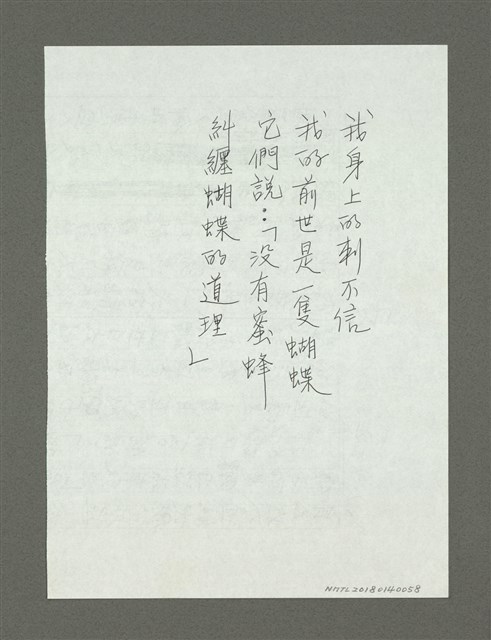 我身上的刺不信
我的前世是一隻蝴蝶
它們說：「沒有蜜蜂
糾纏蝴蝶的道理」
NMTL20180140058